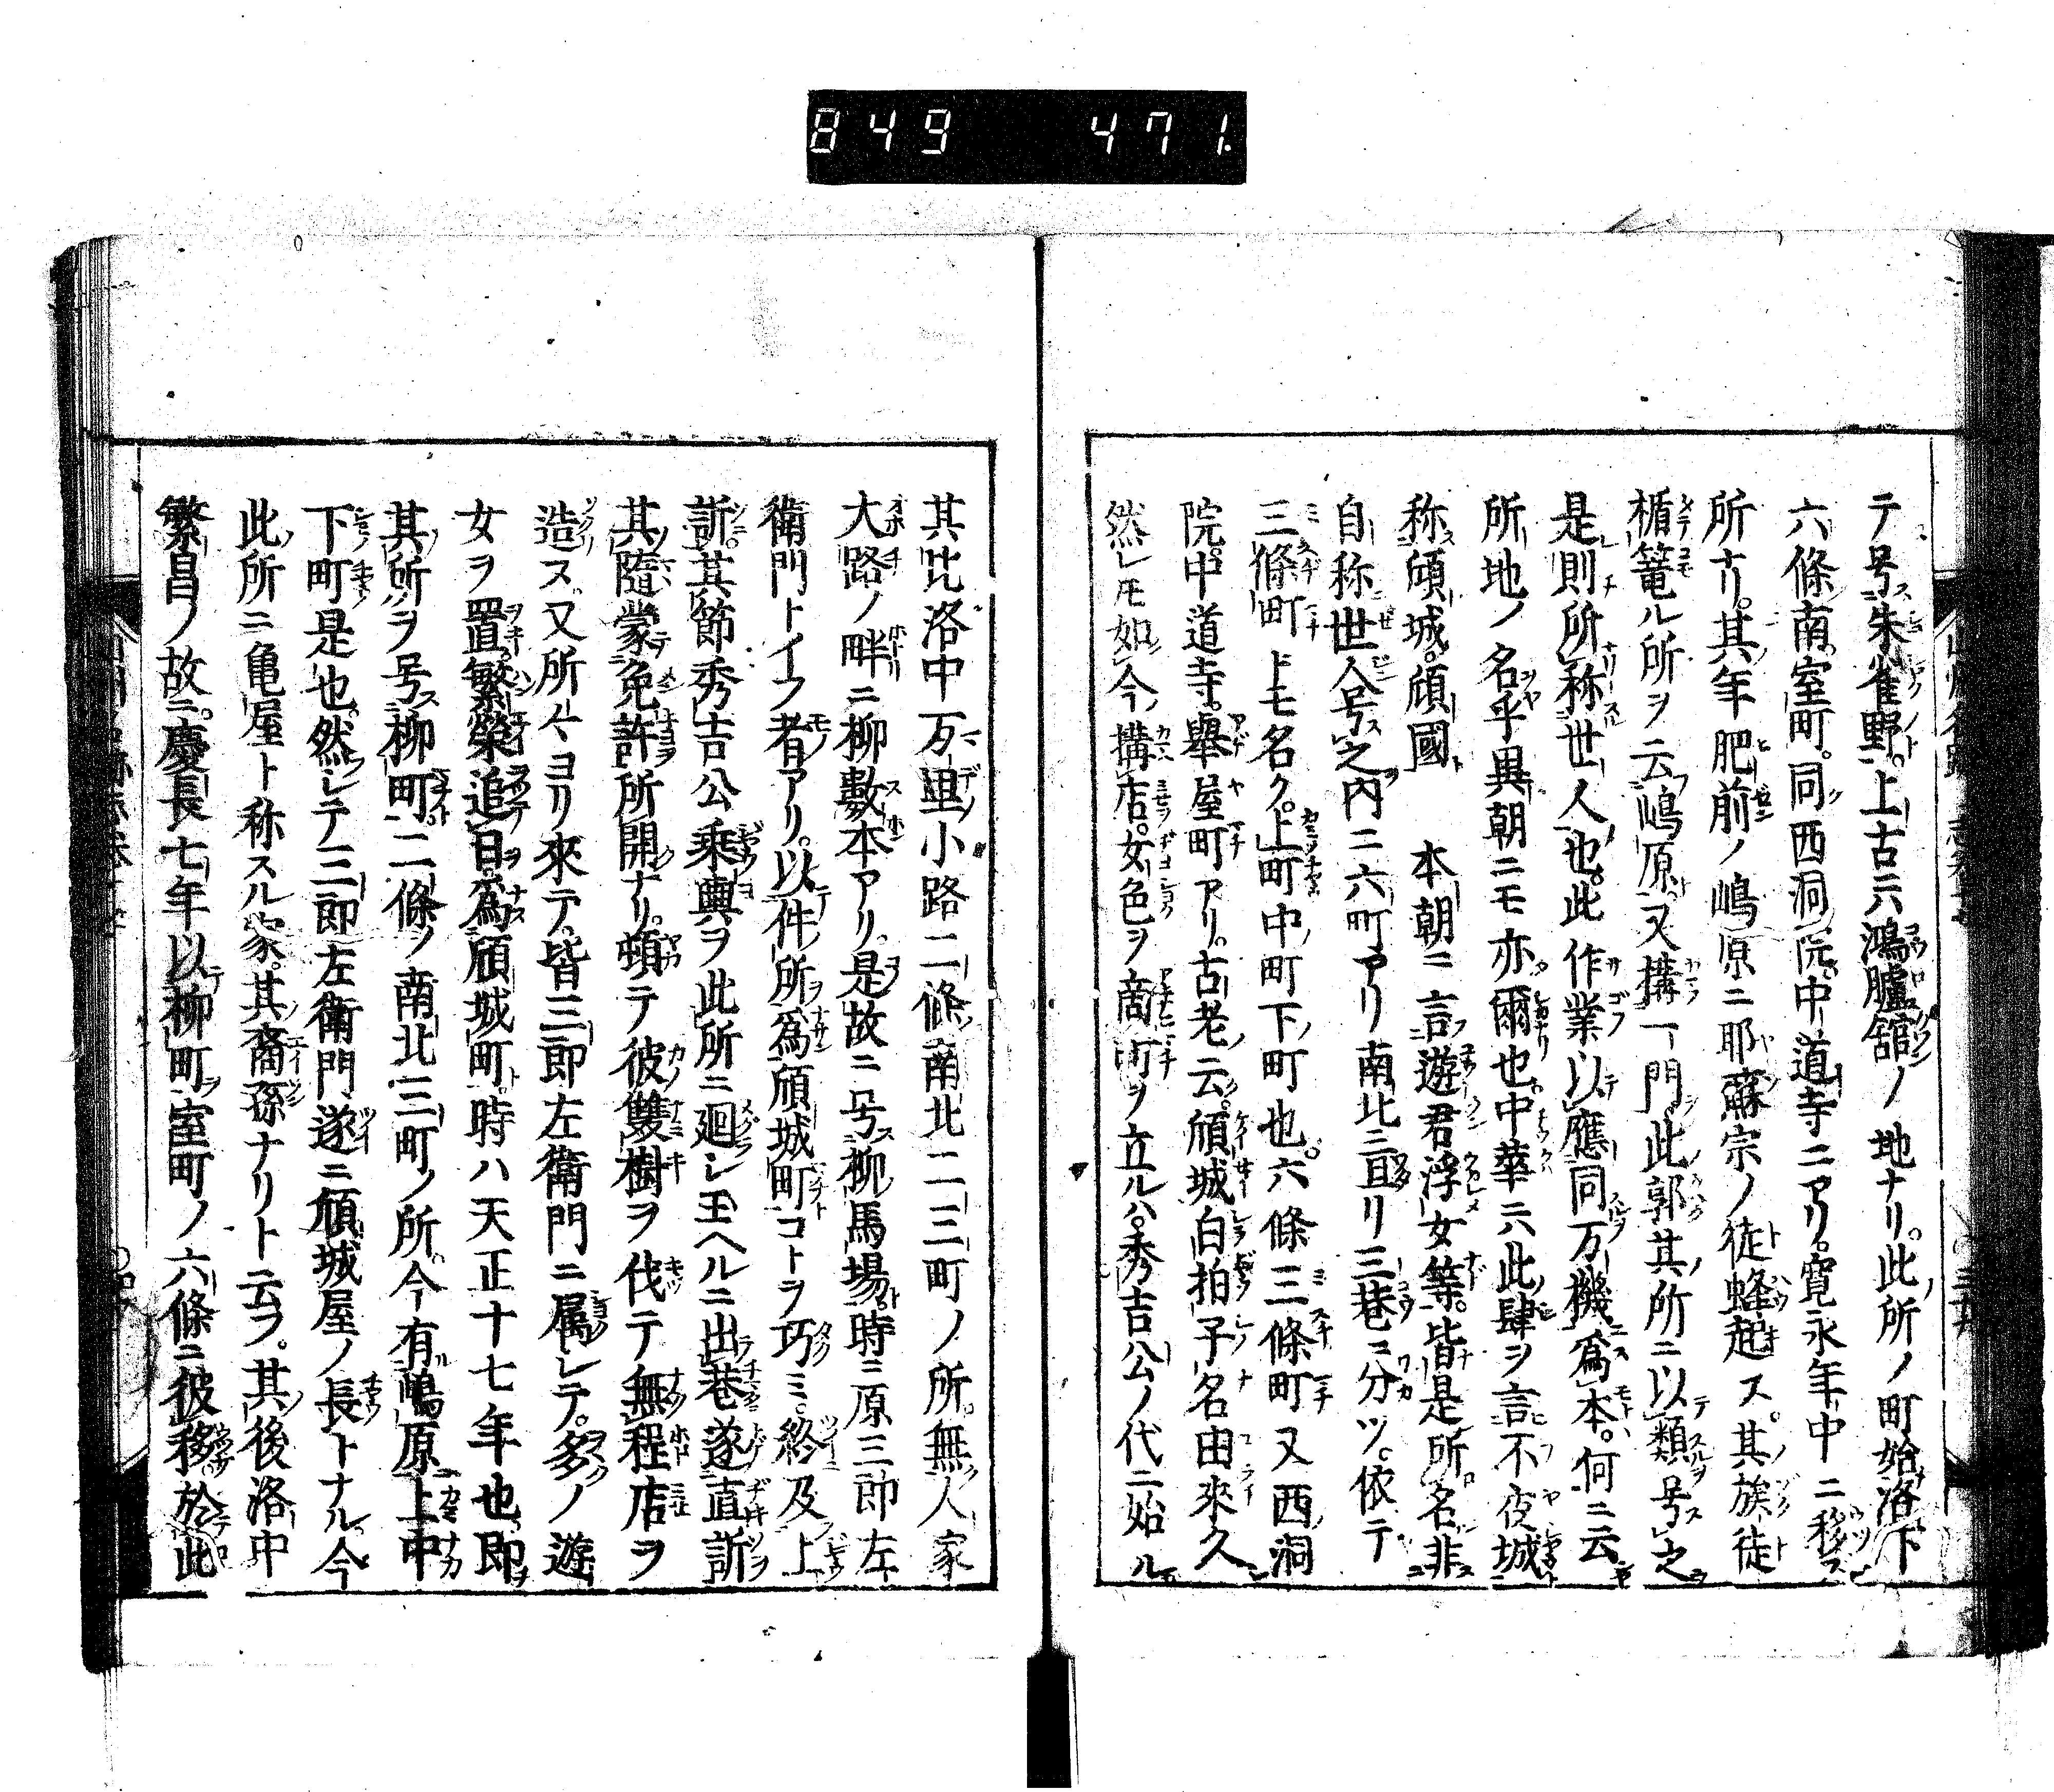 849 471.
テ号朱雀野。上古ニ六鴻臚舘ノ地ナリ。此所ノ町始洛下
六條南。室町。同西洞院。中道寺ニアリ。寛永年中ニ移ス
所ナリ。其年肥前ノ嶋原ニ耶蘇宗ノ徒蜂起ス。其族徒
楯篭ル所ヲ云嶋原。又搆一門此郭其所ニ以類号之
是則所称世人也。此作業以應同万機為本。何ニ云
所地ノ名乎異朝ニモ亦爾也。中華ニ六此肆ヲ言不夜城
称傾城。傾國 本朝ニ言遊君浮女等。皆是所名非
自称世人号之内ニ六町アリ南北ニ亘リ三巷ニ分ツ。依テ
三條町トモ名ク。上町中町下町也。六條三條町又西洞
院。中道寺。擧屋町アリ。古老云。傾城白拍子名由來久
然レモ如今搆店。女色ヲ商町ヲ立ルハ。秀吉公ノ代ニ始ル
其比洛中万里小路二條南北二三町ノ所。無人家
大路ノ畔ニ柳數本アリ。是故ニ号柳馬場。時ニ原三郎左
衛門トイフ者アリ。以件所為傾城町コトヲ巧ミ。終及上
訴。其節秀吉公乗輿ヲ此所ニ廻シ玉ヘルニ出巷遂直訴
其隨蒙免許所開ナリ。頓テ彼雙樹ヲ伐テ無程店ヲ
造ス又所々ヨリ來テ。皆三郎左衛門ニ属シテ。多ノ遊
女ヲ置繁榮追日。為傾城町時ハ天正十七年也。即
其所ヲ号柳町。二條ノ南北三町ノ所。今有嶋原上中
下町是也。然シテ三郎左衛門遂ニ傾城屋ノ長トナル今
此所ニ亀屋ト称スル家。其裔孫ナリト云フ。其後洛中
繁昌ノ故ニ。慶長七年以柳町室町ノ六條ニ彼移。於此